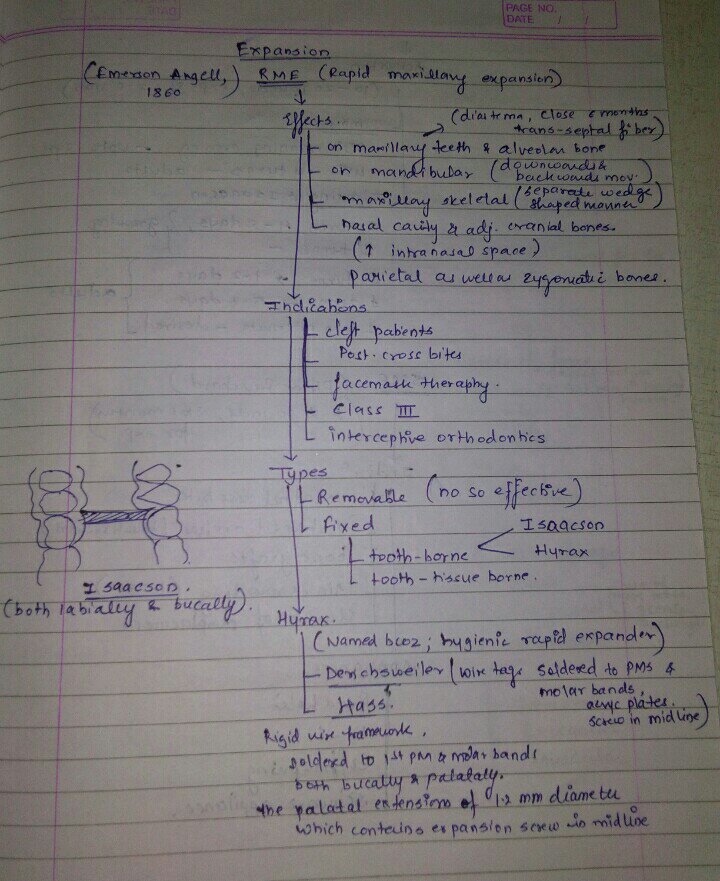 PAGE NO.
DATE / /
Expansion
(Emerson Angell, 1860) RME (Rapid maxillary expansion)
Effects.
(diastema, close 6 months
trans-septal fiber)
on maxillary teeth & alveolar bone
on mandibular (downwards &
backwards mov.)
maxillary skeletal (separate wedge
shaped manner)
nasal cavity & adj. cranial bones.
(↑ intranasal space)
parietal as well as zygomatic bones.
Indications
cleft patients
Post. cross bites
facemask theraphy.
Class III
interceptive orthodontics
Types
Removable (no so effective)
fixed
tooth-borne
Isaacson
Hyrax
tooth-tissue borne.
Isaacson.
(both labially & bucally).
Hyrax.
(Named bcoz; hygienic rapid expander)
Derichsweiler (wire tags soldered to PMs &
molar bands,
acryc plates.
screw in midline)
Hass.
Rigid wire framework,
soldered to 1st PM & molar bands
both bucally & palataly.
the palatal extensions of 1.2 mm diameter
which contains expansion screw in midline